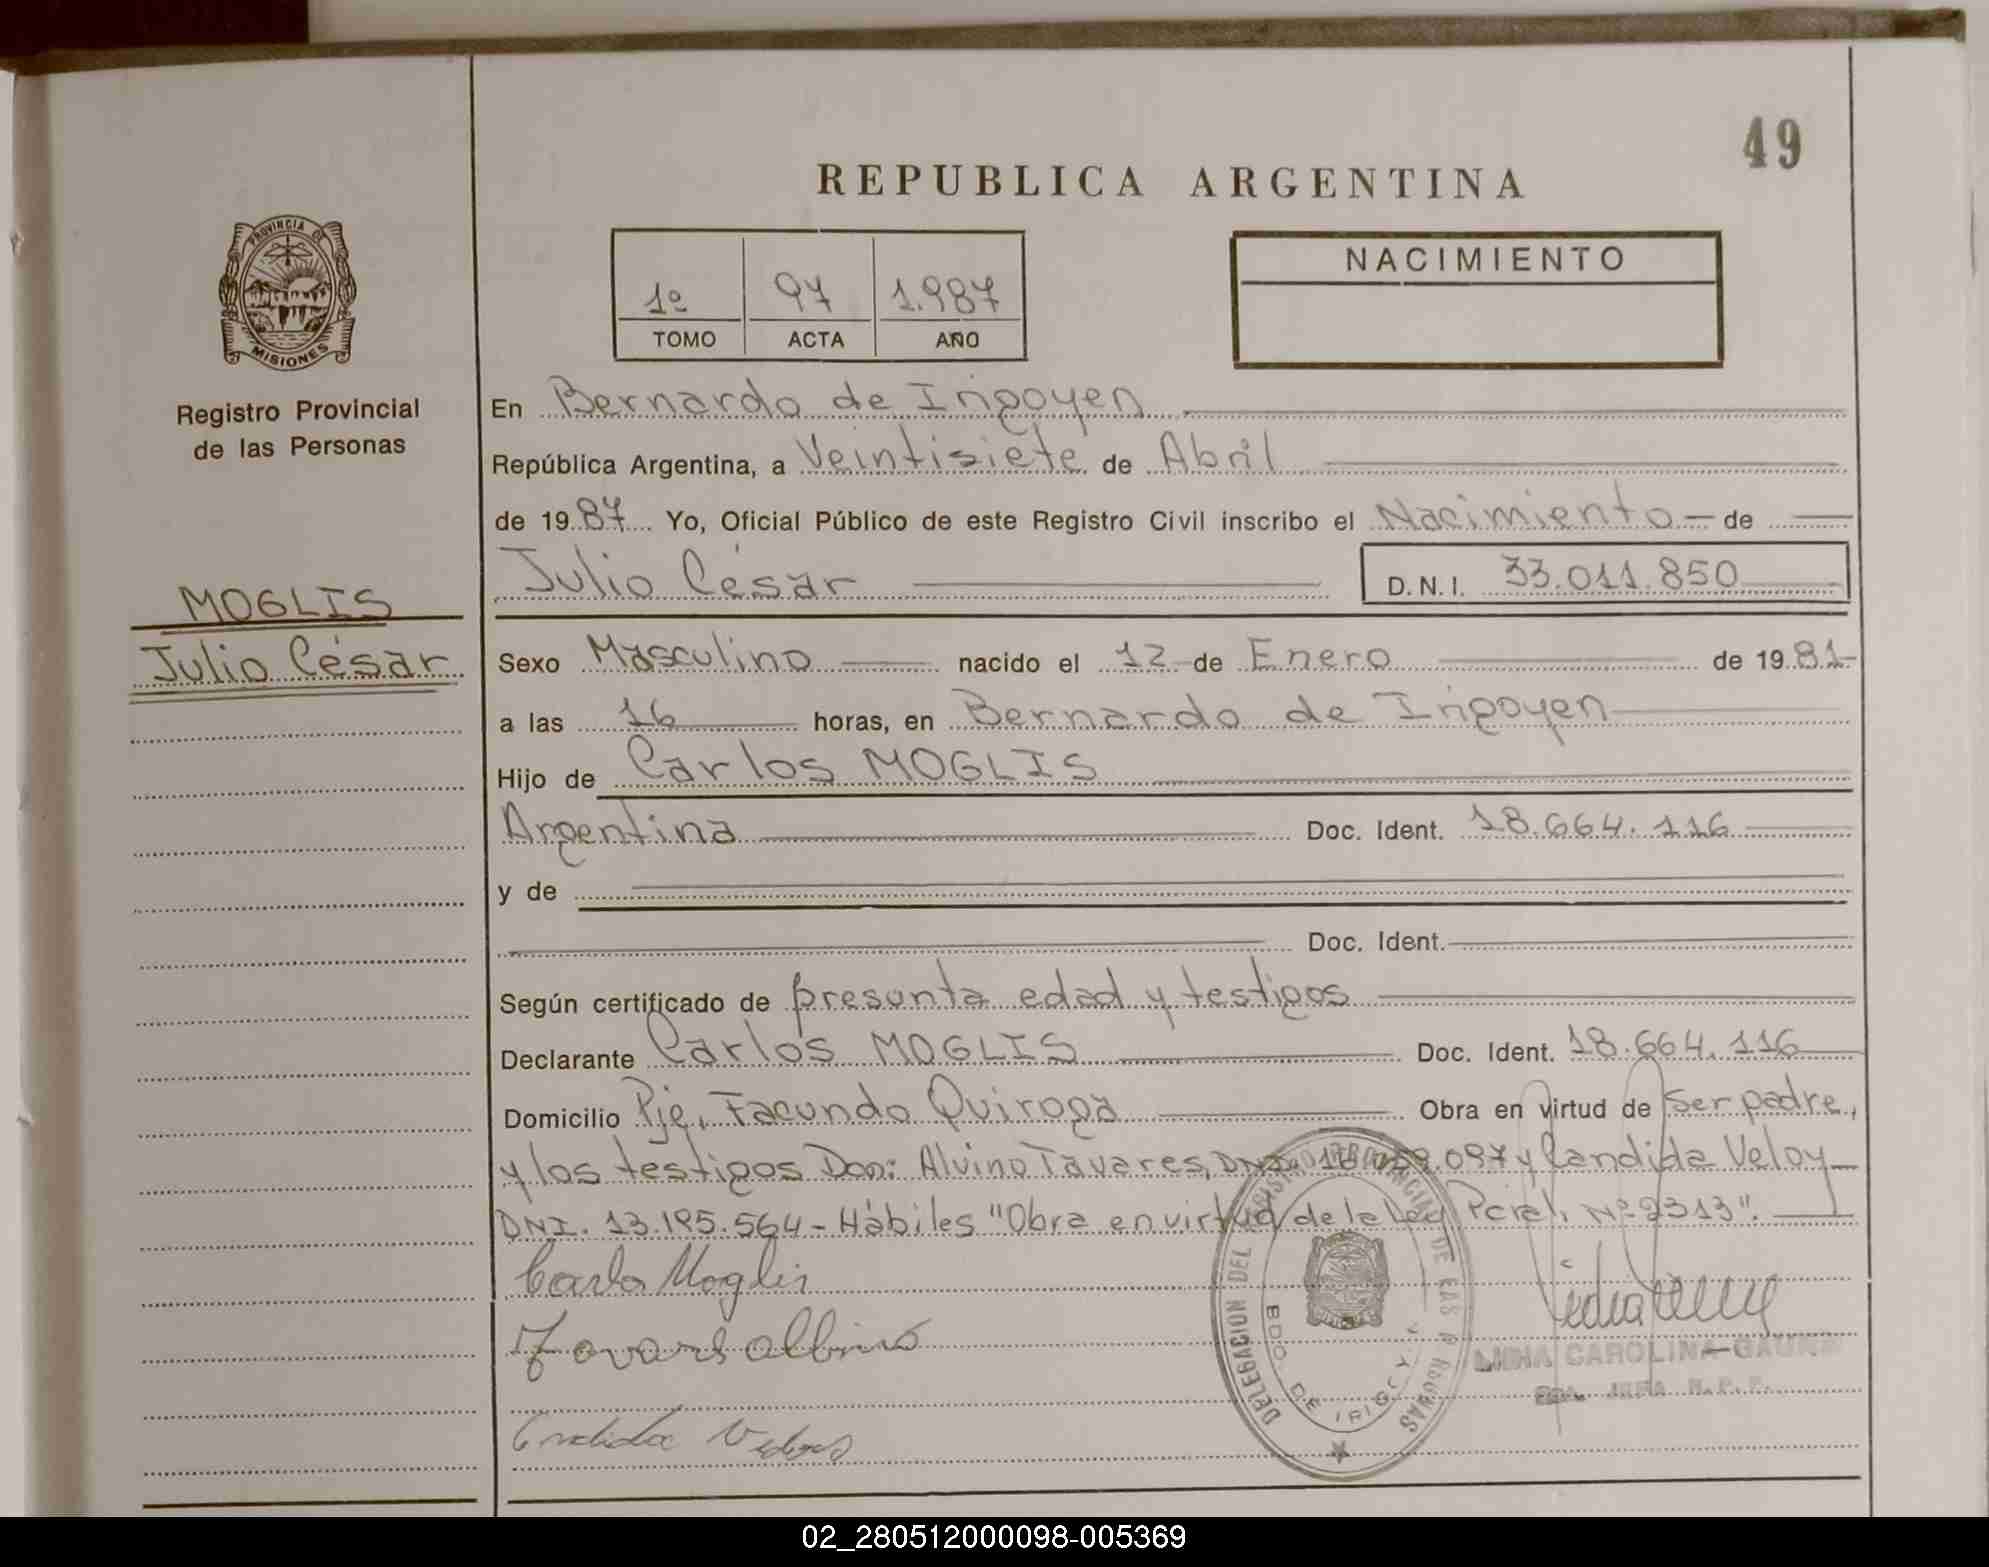 49
REPUBLICA ARGENTINA
PROVINCIA DE
MISIONES
Registro Provincial
de las Personas
1º 97 1.987
TOMO ACTA AÑO
NACIMIENTO
En Bernardo de Irigoyen
República Argentina, a Veintisiete de Abril
de 1987 Yo, Oficial Público de este Registro Civil inscribo el Nacimiento de
Julio César D.N.I. 33.011.850
MOGLIS
Julio César
Sexo Masculino nacido el 12 de Enero de 1981
a las 16 horas, en Bernardo de Irigoyen
Hijo de Carlos MOGLIS
Argentina Doc. Ident. 18.664.116
y de
Doc. Ident.
Según certificado de presunta edad y testigos
Declarante Carlos MOGLIS Doc. Ident. 18.664.116
Domicilio Pje. Facundo Quiroga Obra en virtud de ser padre,
y los testigos Don: Alvino Tavares, DNI. y Candida Veloy
DNI. 13.195.564 - Hábiles "Obra en virtud de la Ley Pcial. Nº 2313".
Carlo Moglis
DELEGACION DEL REGISTRO PROVINCIAL DE LAS PERSONAS
BDO. DE IRIGOYEN
CAROLINA
JEFA R.P.P.
02_280512000098-005369